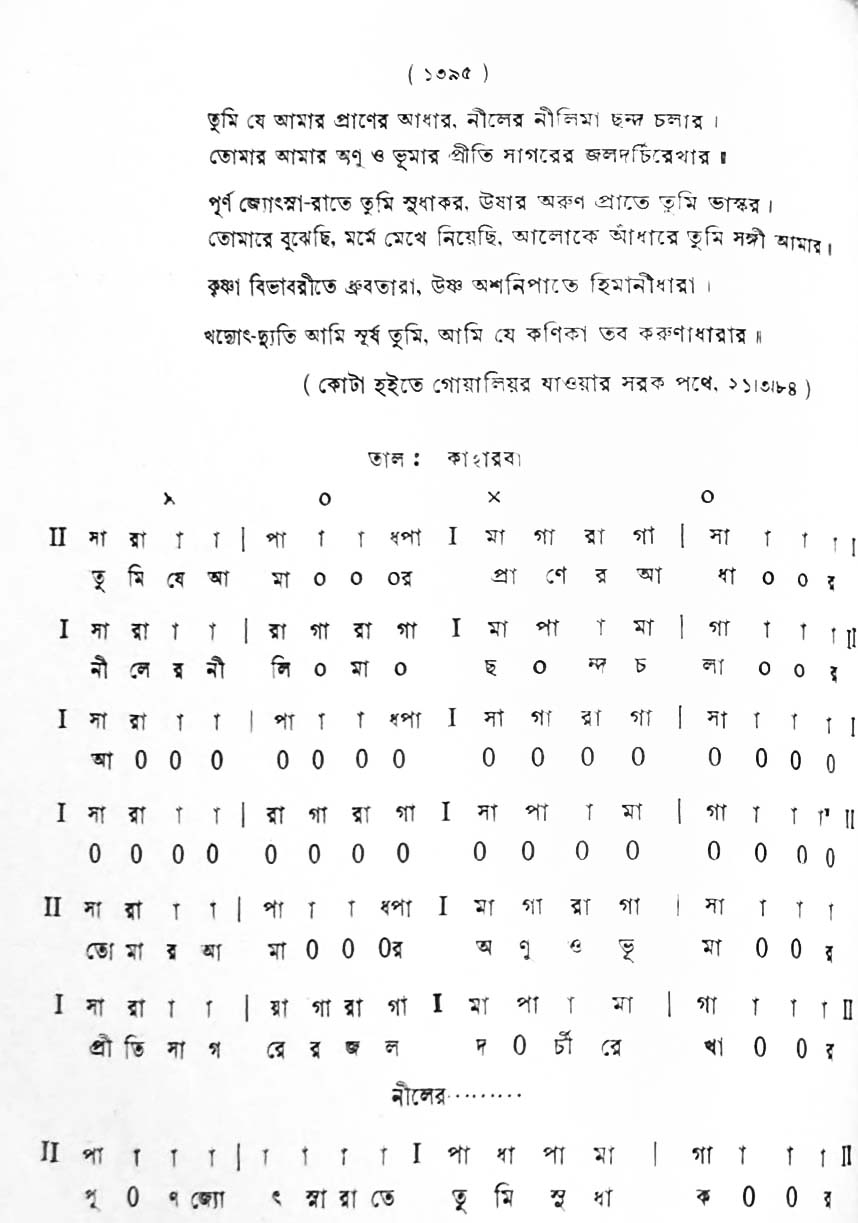 ( ১৩৯৫ )
তুমি যে আমার প্রাণের আধার, নীলের নীলিমা ছন্দ চলার ।
তোমার আমার অণু ও ভূমার প্রীতি সাগরের জলদর্চিরেখার ॥
পূর্ণ জ্যোৎস্না-রাতে তুমি সুধাকর, উষার অরুণ প্রাতে তুমি ভাস্কর ।
তোমারে বুঝেছি, মর্মে মেখে নিয়েছি, আলোকে আঁধারে তুমি সঙ্গী আমার ।
কৃষ্ণা বিভাবরীতে ধ্রুবতারা, উষ্ণ অশনিপাতে হিমানীধারা ।
খদ্যোৎ-দ্যুতি আমি সূর্য তুমি, আমি যে কণিকা তব করুণাধারার ॥
( কোটা হইতে গোয়ালিয়র যাওয়ার সরক পথে, ২১।৩।৮৪ )
তাল : কাহারবা
× ০ × ০
II সা রা া া | পা া া ধপা I মা গা রা গা | সা া া া I
তু মি যে আ মা ০ ০ ০র প্রা ণে র আ ধা ০ ০ র
I সা রা া া | রা গা রা গা I মা পা া মা | গা া া া II
নী লে র নী লি ০ মা ০ ছ ০ ন্দ চ লা ০ ০ র
I সা রা া া | পা া া ধপা I সা গা রা গা | সা া া া I
আ 0 0 0 0 0 0 0 0 0 0 0 0 0 0 0
I সা রা া া | রা গা রা গা I সা পা া মা | গা া া া' II
0 0 0 0 0 0 0 0 0 0 0 0 0 0 0 0
II সা রা া া | পা া া ধপা I মা গা রা গা | সা া া া
তো মা র আ মা 0 0 0র অ ণু ও ভূ মা 0 0 র
I সা রা া া | রা গা রা গা I মা পা া মা | গা া া া II
প্রী তি সা গ রে র জ ল দ 0 র্চী রে খা 0 0 র
নীলের·········
II পা া া া | া া া া I পা ধা পা মা | গা া া া II
পূ 0 ণ জ্যো ৎ স্না রা তে তু মি সু ধা ক 0 0 র